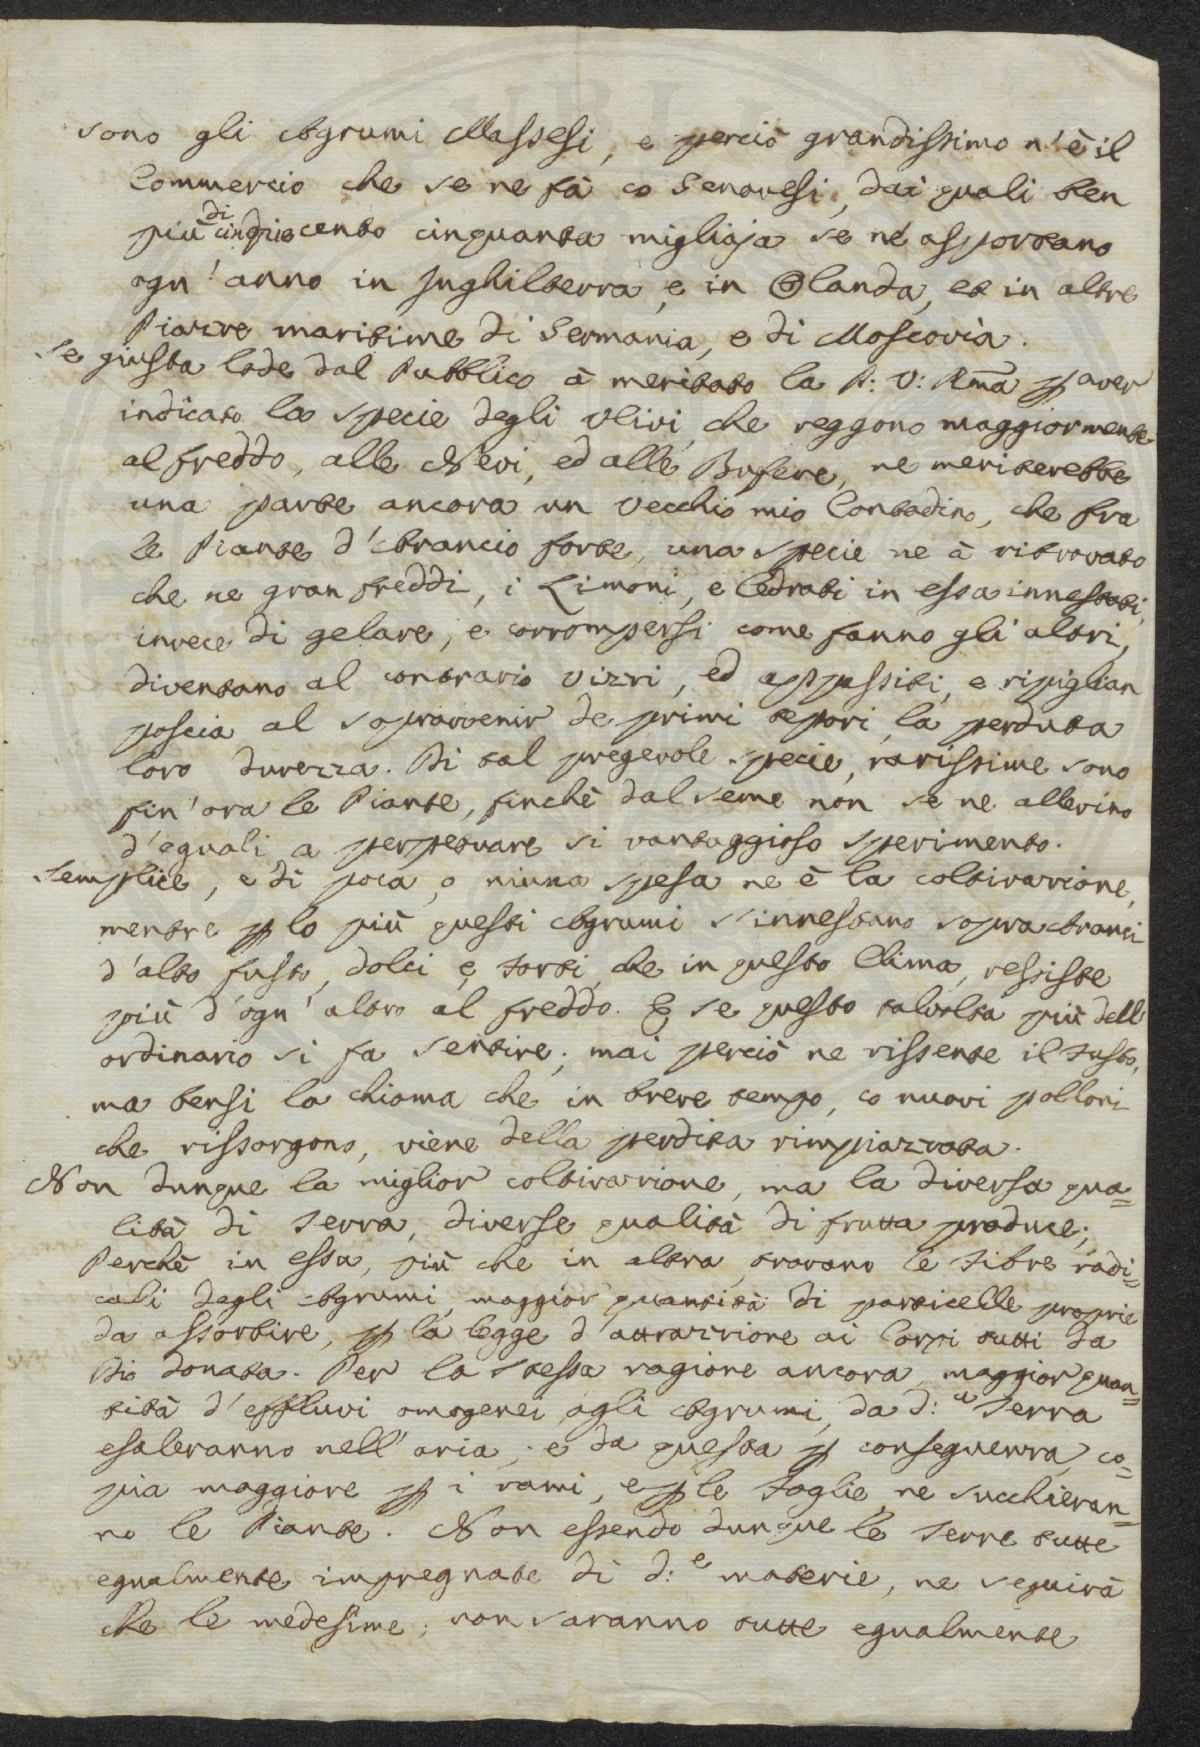 sono gli Agrumi Massesi, e perciò grandissimo n'è il
Commercio che se ne fà co Genovesi, dai quali ben
più di cinquecento cinquanta migliaja se ne asportano
ogn'anno in Inghilterra, e in Olanda, et in altre
Piazze maritime di Germania, e di Moscovia.
Se giusta lode dal Pubblico à meritato la P: V: Rma p aver
indicato la specie degli Ulivi, che reggono maggiormente
al freddo, alle Nevi, ed alle Bufere, ne meriterebbe
una parte ancora un Vecchio mio Contadino, che fra
le Piante d'Arancio forte, una specie ne à ritrovato
che ne gran freddi, i Limoni, e Cedrati in essa innestati,
invece di gelare, e corrompersi come fanno gli altri,
diventano al contrario vizzi, ed appassiti, e ripiglian
poscia al sopravvenir de primi tepori, la perduta
loro durezza. Di tal pregevole specie, rarissime sono
fin'ora le Piante, finchè dal seme non se ne allevino
d'eguali, a perpetuare si vantaggioso sperimento.
Semplice, e di poca, o niuna spesa ne è la coltivazione,
mentre p lo più questi Agrumi s'innestano sopra Aranci
d'alto fusto, dolci, e forti, che in questo Clima, ressiste
più d'ogn'altro al freddo. E se questo talvolta più dell
ordinario si fa sentire, mai perciò ne rissente il fusto,
ma bensi la chioma che in breve tempo, co nuovi polloni
che rissorgono, viene della perdita rimpiazzata.
Non dunque la miglior coltivazione, ma la diversa qua=
lità di Terra, diverse qualità di frutta produce;
Perchè in essa, più che in altra, trovano le fibre radi=
cali degli Agrumi, maggior quantità di particelle proprie
da assorbire, p la legge d'attrazzione ai Corpi tutti da
Dio donata. Per la stessa ragione ancora, maggior quan=
tità d'effluvi omogenei agli Agrumi, da d:a Terra
esaleranno nell'aria, e da questa p conseguenza, co=
pia maggiore p i rami, e p le foglie ne succhieran=
no le Piante. Non essendo dunque le Terre tutte
egualmente impregnate di d:e materie, ne seguirà
che le medesime, non saranno tutte egualmente